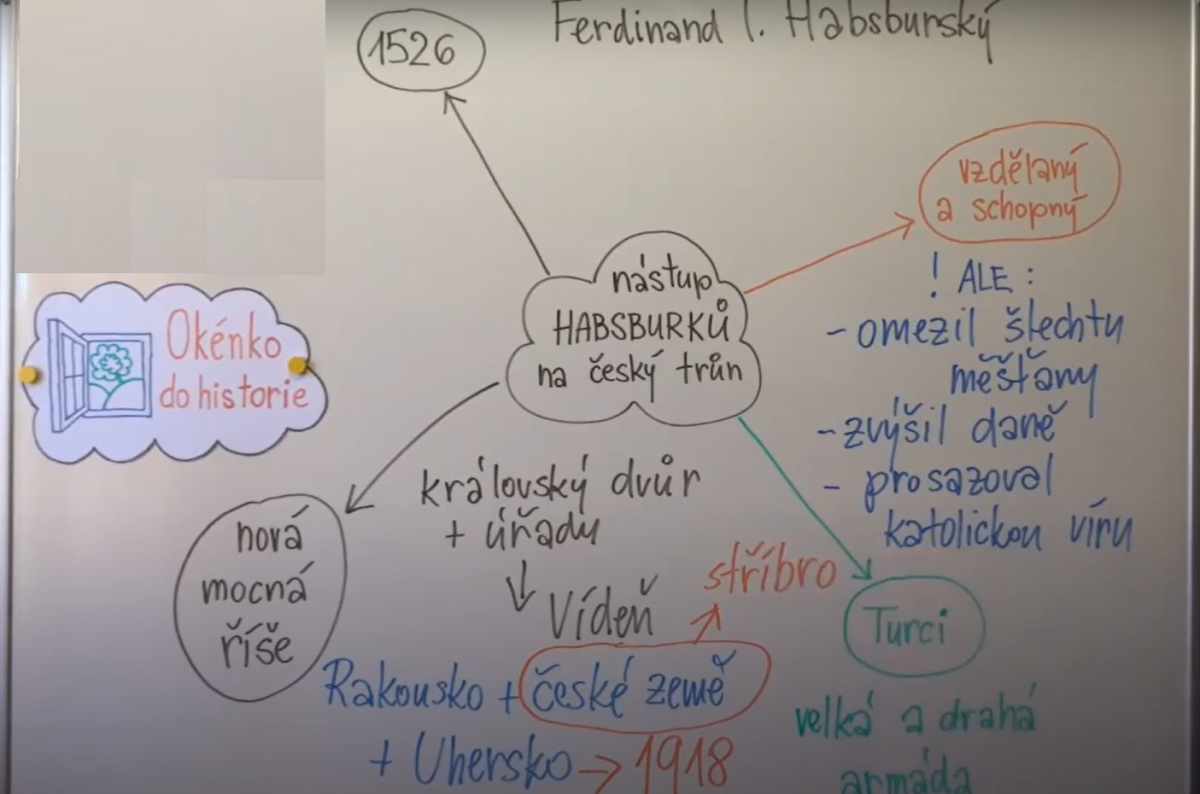 1526
Ferdinand I. Habsburský
vzdělaný
a schopný
nástup
HABSBURKŮ
na český trůn
! ALE :
- omezil šlechtu
měšťany
- zvýšil daně
- prosazoval
katolickou víru
Okénko
do historie
královský dvůr
+ úřady
nová
mocná
říše
Vídeň
stříbro
Turci
Rakousko + české země
+ Uhersko → 1918
velká a drahá
armáda